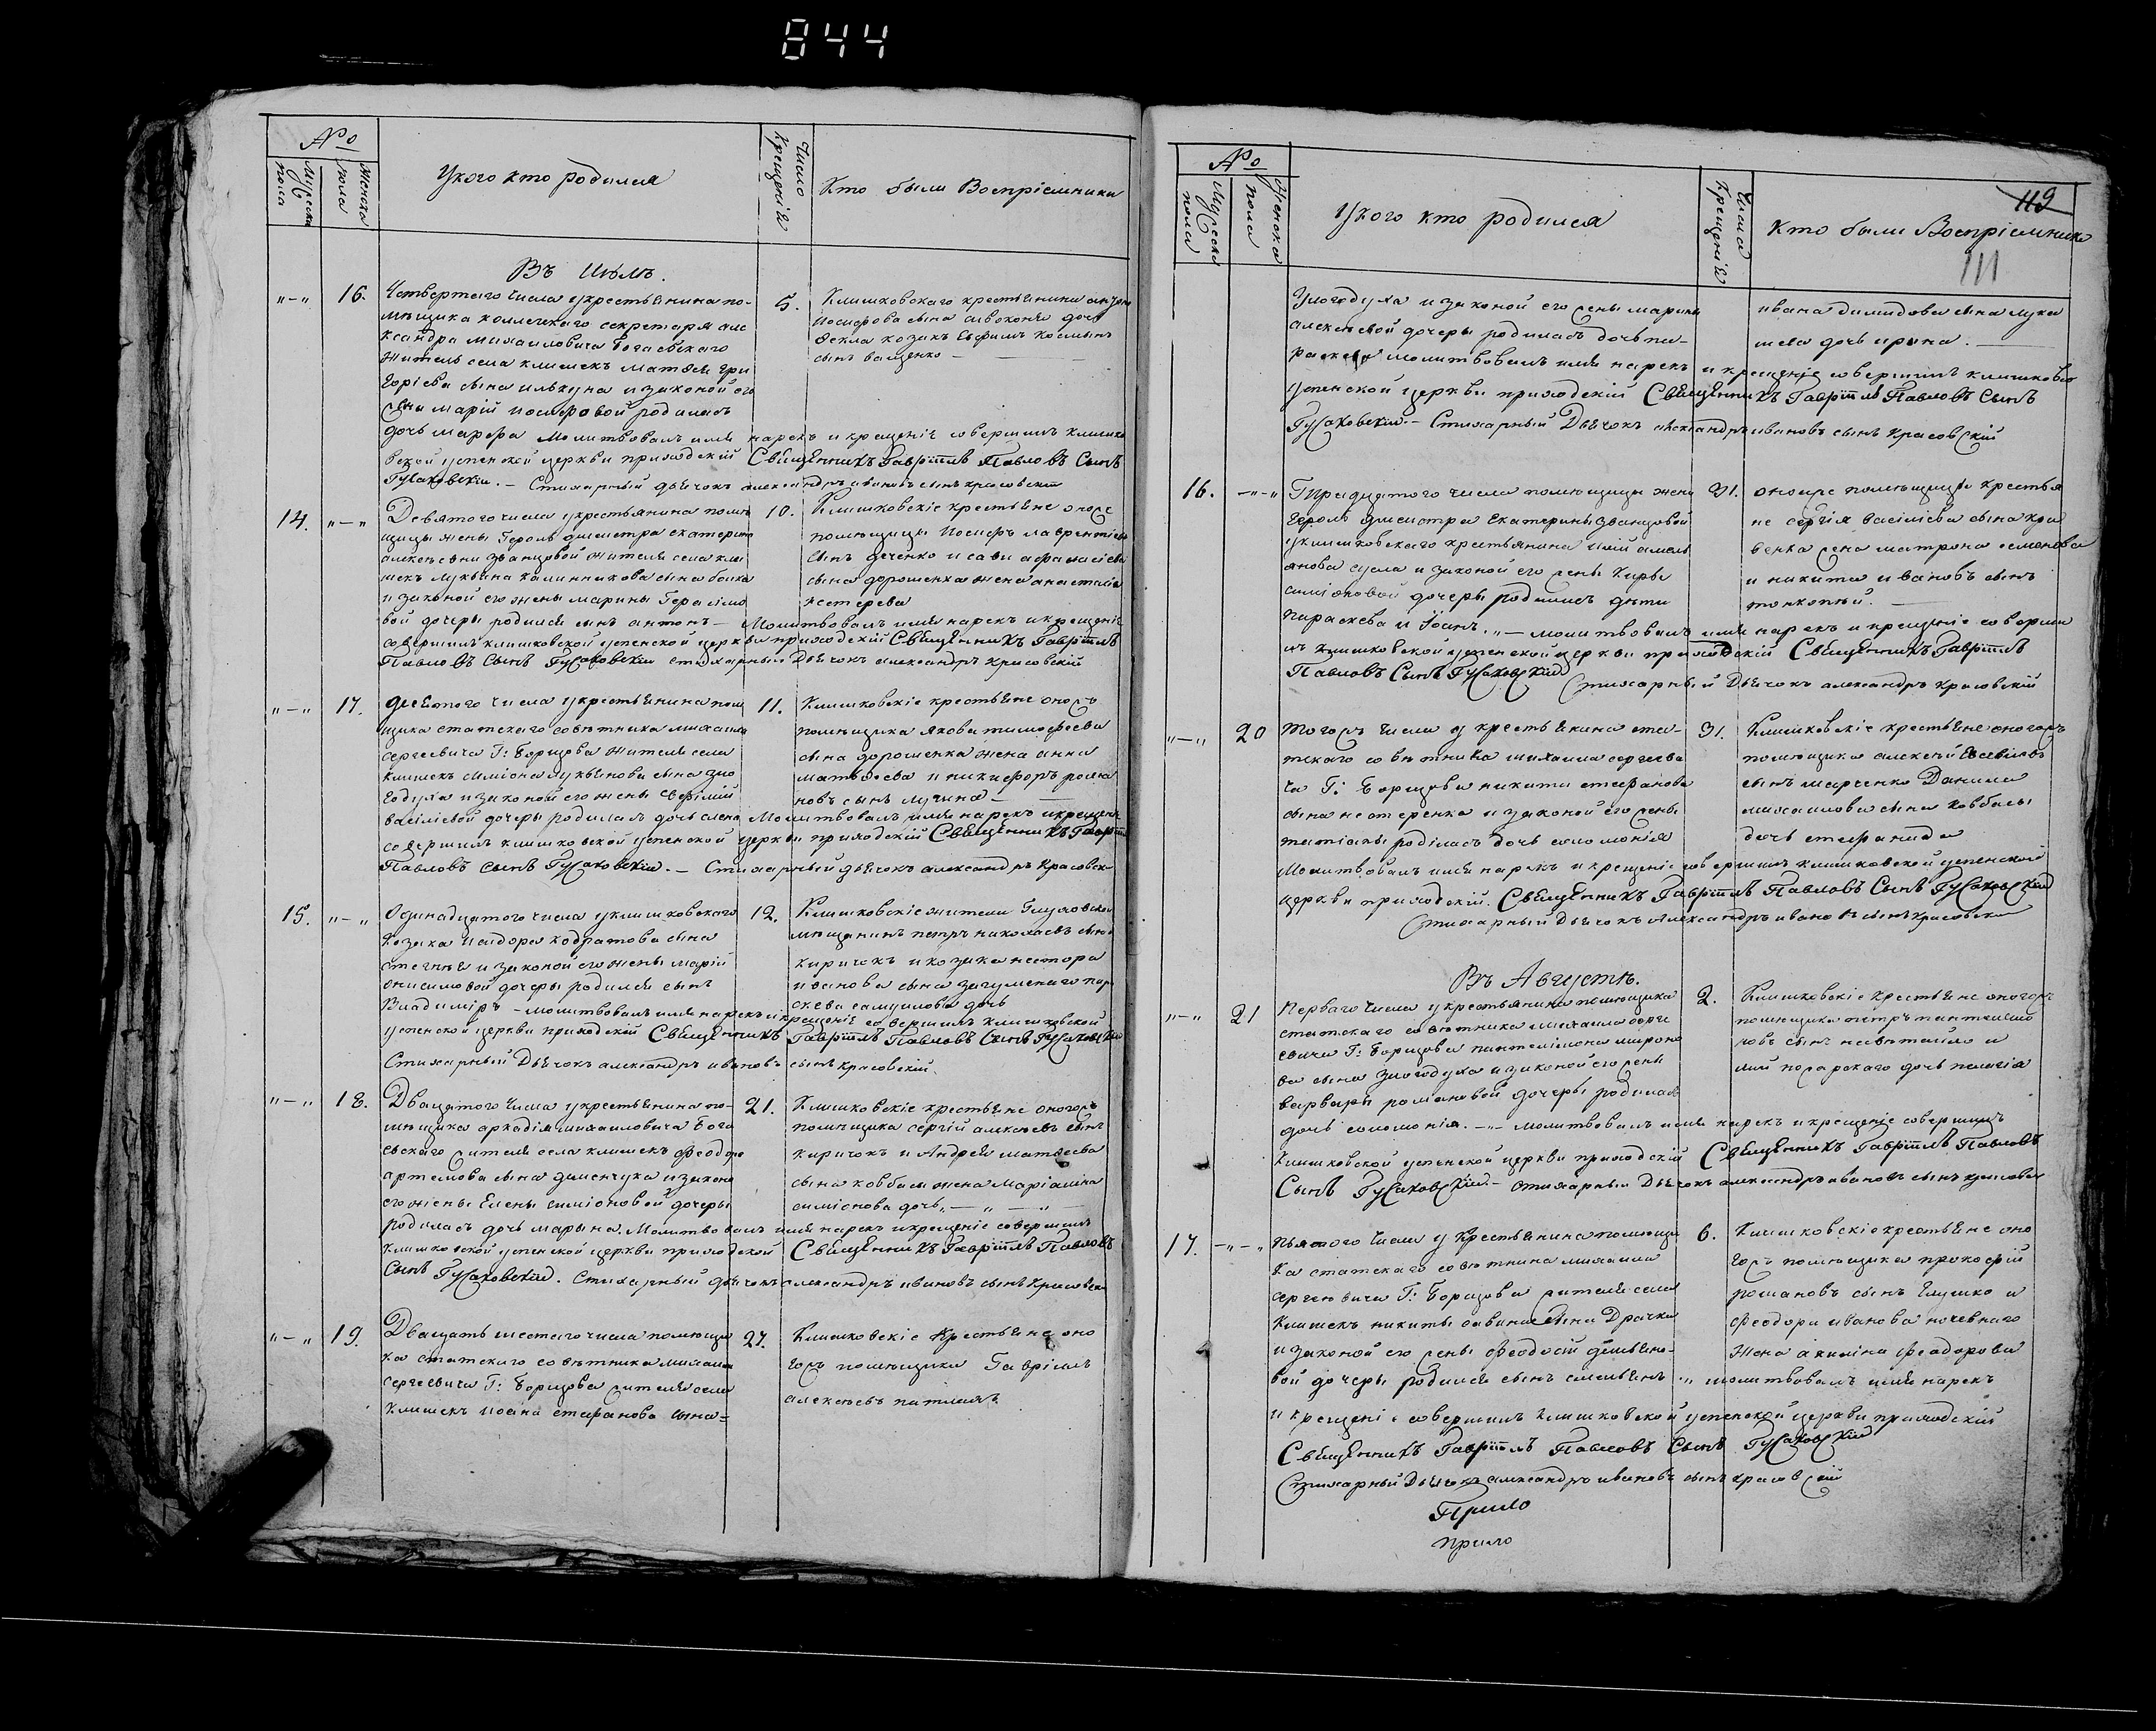 844
№
Мужеска пола
Женска пола
У кого кто родился
Число крещенія
Кто были Воспріемники
Въ Июлѣ.
"-" 16. Четвертаго числа у крестьянина по-
мѣщика коллежкаго секретаря але
ксандра михаиловича Богаевскаго
жителя села клишекъ матѳея гри
горіева сына и законой его
жены маріи иосифовой родилась
дочь марѳа молитвовалъ имя нарекъ и крещеніе совершилъ клишко
вской успенской церкви приходскій Священникъ Гавріилъ Павловъ Сынъ
Гусаковскій. - Стихарный дьячокъ александръ ивановъ сынъ красовскій
5. Клишковскаго крестьянина
иосифова сына дочь
Ѳекла козакъ Евфимъ Космынъ
сынъ ващенко
14. "-" Девятого числа у крестьянина помѣ
щицы жены екатерины
алексѣевни званцовой жителя села кли
шекъ лукьяна калинникова сына бойка
и законой его жены марины Герасимо
вой дочеры родился сынъ антонъ - Молитвовалъ имя нарекъ и крещеніе
совершилъ клишковской успенской церкви приходскій Священникъ Гавріилъ
Павловъ Сынъ Гусаковскій стихарный Дьячокъ александръ красовскій
10. Клишковскіе крестьяне оное
помѣщицы Иосифъ лаврентіевъ
сынъ деченко и савы афанасіева
сына дорошенка жена анастасія
нестерева
"-" 17. числа у крестьянина помѣ
щика статскаго совѣтника михаила
сергеевича Г: Борщова жителя села
клишекъ симіона лукьянова сына зло
годуха и законой его жены
василіевой дочеры родилась дочь елена Молитвовалъ имя нарекъ и крещеніе
совершилъ клишковской успенской церкви приходскій Священникъ Гавріилъ
Павловъ сынъ Гусаковскій. - Стихарный дьячокъ александръ красовскій
11. Клишковскіе крестьяне оногожъ
помѣщика якова тимофеева
сына дорошенка жена анна
матвѣева и никифоръ рома
новъ сынъ лучина -
15. "-" Одинадцятого числа у клишковскаго
козака исидора кодратова сына
и законой его жены маріи
онисимовой дочеры родился сынъ
Владиміръ - молитвовалъ имя нарекъ и крещеніе совершилъ клишковской
успенской церкви приходской Священникъ Гавріилъ Павловъ Сынъ Гусаковскій
Стихарный Дьячокъ александръ ивановъ сынъ красовскій.
12. Клишковскіе жители Глуховскій
мѣщанинъ петръ николаевъ сынъ
киричокъ и козака нестора
иванова сына загуменаго пара
скева самуилова дочь
"-" 18. Двацятого числа у крестьянина по-
мѣщика аркадія михаиловича Бога
евскаго жителя села клишекъ феодора
артемова сына даменчука и законой
его жены Елены симіоновой дочеры
родилась дочь марына. Молитвовалъ имя нарекъ и крещеніе совершилъ
клишковской успенской церкви приходской Священникъ Гавріилъ Павловъ
Сынъ Гусаковскій. Стихарный дьячокъ александръ ивановъ сынъ красовскій
21. Клишковскіе крестьяне оногожъ
помѣщика сергій алексѣевъ сынъ
киричокъ и Андрея матвѣева
сына ковбасы жена Маріамна
симіонова дочь. - " - " -
"-" 19. Двацять шестаго числа помѣщи
ка статскаго совѣтника михаила
сергеевича Г: Борщова жителя села
клишекъ иоана стефанова сына=
27. Клишковскіе крестьяне оно
гожъ помѣщика Гавріилъ
алексѣевъ
№
Мужеска пола
Женска пола
У кого кто родился
Числа крещенія
Кто были Воспріемники
119
111
Злогодуха и законой его жены марины
алексѣевой дочеры родилась дочь па-
раскева молитвовалъ имя нарекъ и крещеніе совершилъ клишковской
успенской церкви приходскій Священникъ Гавріилъ Павловъ Сынъ
Гусаковскій. - Стихарный Дьячокъ александръ ивановъ сынъ красовскій
ивана сына
дочь ирина.
16. "-" Тридцятого числа помѣщицы жены
Екатерины званцовой
у клишковскаго крестьянина иліи амель
янова и законой его жены
симіоновой дочеры родились дѣти
Параскева и Іоанъ. " - молитвовалъ имя нарекъ и крещеніе соверши
лъ клишковской успенской церкви приходскій Священникъ Гавріилъ
Павловъ Сынъ Гусаковскій
Стихарный Дьячокъ александръ красовскій
31. оноире помѣщицы крестья
не сергія василіева сына кра
венка жена матрона семенова
и никита ивановъ сынъ
"-" 20 Тогожъ числа у крестьянина ста-
тскаго совѣтника михаила сергееви
ча Г: Борщова никиты стефанова
сына нестеренка и законой его жены
татіаны родилась дочь соломонія
Молитвовалъ имя нарекъ и крещеніе совершилъ клишковской успенской
церкви приходскій. Священникъ Гавріилъ Павловъ Сынъ Гусаковскій
Стихарный Дьячокъ Александръ ивановъ сынъ красовскій
31. Клишковскіе крестьяне оногожъ
помѣщика алексѣй
сынъ марченко Данила
михаилова сына ковбасы
дочь стефанида
Въ Августѣ.
"-" 21 Перваго числа у крестьянина помѣщика
статскаго совѣтника михаила серге
евича Г: Борщова пантелімона мироно
ва сына злогодуха и законой его жены
варвары романовой дочеры родилась
дочь соломонія. -"- молитвовалъ имя нарекъ и крещеніе совершилъ
клишковской успенской церкви приходскій Священникъ Гавріилъ Павловъ
Сынъ Гусаковскій. - стихарный Дьячокъ александръ ивановъ сынъ красовскій
2. Клишковскіе крестьяне оногожъ
помѣщика петръ пантелимо
новъ сынъ и
дочь пелагія
17. "-" Пьятого числа у крестьянина помѣщи
ка статскаго совѣтника михаила
сергеевича Г: Борщова жителя села
клишекъ никиты савина сына Драчка
и законой его жены феодосіи
вой дочеры родился сынъ емельянъ " молитвовалъ имя нарекъ
и крещеніе совершилъ клишковской успенской церкви приходскій
Священникъ Гавріилъ Павловъ Сынъ Гусаковскій
Стихарный Дьячокъ александръ ивановъ сынъ красовскій
6. Клишковскіе крестьяне оно
гожъ помѣщика прокофій
романовъ сынъ Глушко и
феодора иванова ночевнаго
жена акилина феодорова